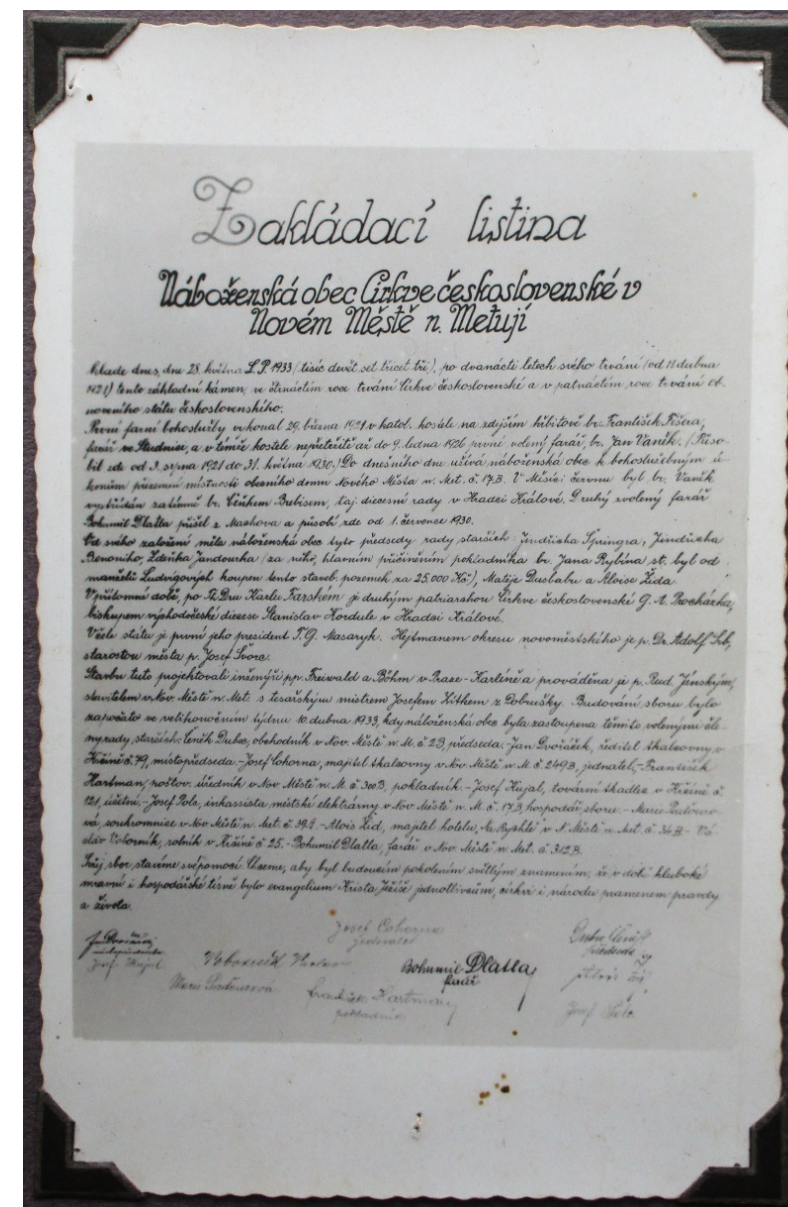 Zakládací listina
Náboženská obec Církve československé v
Novém Městě n. Metují
klade dnes, dne 28. května L.P. 1933 (tisíc devět set třicet tři), po dvanácti letech svého trvání (od 11 dubna
1921) tento základní kámen, ve čtrnáctém roce trvání Církve československé a v patnáctém roce trvání ob-
noveného státu československého.
První farní bohoslužby vykonal 29. března 1921 v katol. kostele na zdejším hřbitově br. František Fišera,
farář ve Studnici, a v témže kostele nepřetržitě až do 9. ledna 1926 první volený farář, br. Jan Vaněk. (Půso-
bil zde od 3. srpna 1921 do 31. května 1930.) Do dnešního dne užívá náboženská obec k bohoslužebným ú-
konům přízemní místnosti obecního domu Nového Města n. Met. č. 17B. V Měsíci červnu byl br. Vaněk
vystřídán zatímně br. Čeňkem Brebisem, taj. diecesní rady v Hradci Králové. Druhý zvolený farář
Bohumil Dlatla přišel z Machova a působí zde od 1. července 1930.
Od svého založení měla náboženská obec tyto předsedy rady starších: Jindřicha Špringra, Jindřicha
Benoniho, Zdeňka Jandourka (za něho, hlavním přičiněním pokladníka br. Jana Rybína st. byl od
manželů Ludvigových koupen tento staveb. pozemek za 25.000 Kč), Matěje Dusbabu a Aloise Žida.
V přítomné době, po Th Dru Karlu Farském je druhým patriarchou Církve československé G. A. Procházka,
biskupem východočeské diecese Stanislav Kordule v Hradci Králové.
V čele státu je první jeho president T. G. Masaryk. Hejtmanem okresu novoměstského je p. Dr. Adolf
starostou města p. Josef Svorc.
Stavbu tuto projektovali inženýři pp. Freiwald a Böhm v Praze - Karlíně a prováděna je p. Rud. Jínským,
stavitelem v Nov. Městě n. Met. s tesařským mistrem Josefem Zithem z Dobrušky. Budování sboru bylo
započato ve velikonočním týdnu 10. dubna 1933, kdy náboženská obec byla zastoupena těmito volenými čle-
ny rady starších: Čeněk Dubec, obchodník v Nov. Městě n. M. č. 2B, předseda. - Jan Dvořáček, ředitel tkalcovny v
Krčíně č. 79, místopředseda. - Josef Cohorna, majitel tkalcovny v Nov. Městě n. M. č. 249B, jednatel, - František
Hartman, poštov. úředník v Nov. Městě n. M. č. 300B, pokladník. - Josef Kujal, tovární tkadlec v Krčíně č.
121, účetní. - Josef Pola, inkassista městské elektrárny v Nov. Městě n. M. č. 17B, hospodář sboru. - Marie
vá, soukromnice v Nov. Městě n. Met. č. 399. - Alois Žid, majitel hotelu v N. Městě n. Met. č. 36B. - Vá-
clav Voborník, rolník v Krčíně č. 25. - Bohumil Dlatla, farář v Nov. Městě n. Met. č. 312B.
Svůj sbor stavíme svépomocí. Chceme, aby byl budoucím pokolením světlým znamením, že v době hluboké
mravní i hospodářské tísně bylo evangelium Krista Ježíše jednotlivcům, církvi i národu pramenem pravdy
a života.
Josef Cohorna
jednatel
J. Dvořáček
místopředseda
Josef Kujal
Voborník Václav
Bohumil Dlatla
farář
Dubec Čeněk
předseda
Alois Žid
Marie
František Hartman
pokladník
Josef Pola